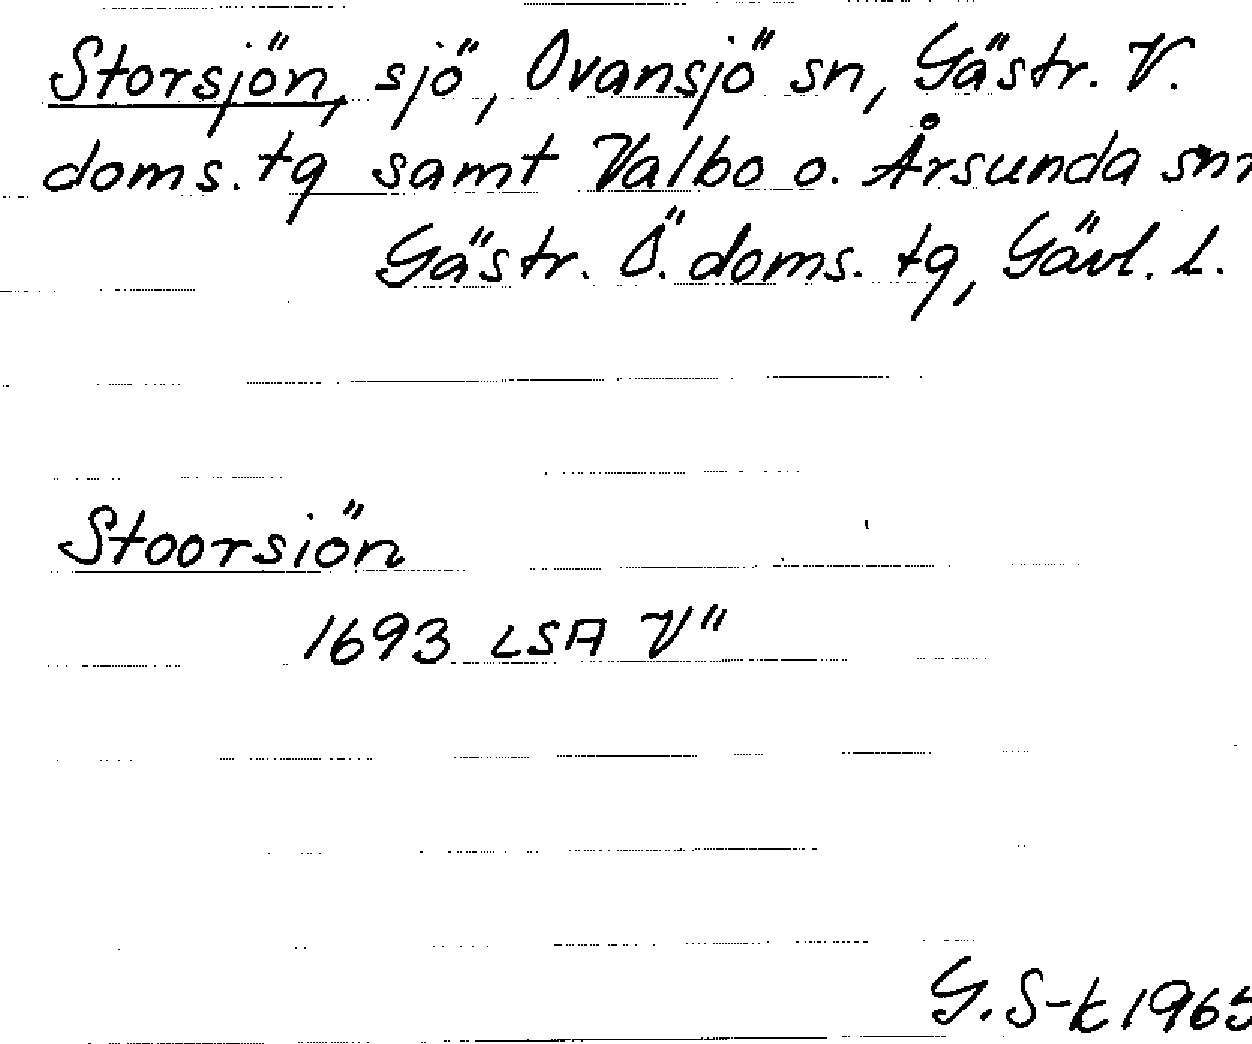 Storsjön, sjö, Ovansjö sn, Gästr. V.
doms. tg samt Valbo o. Årsunda snr
Gästr. Ö. doms. tg, Gävl. l.
Stoorsiön
1693 LSA V"
G. S-k 1965